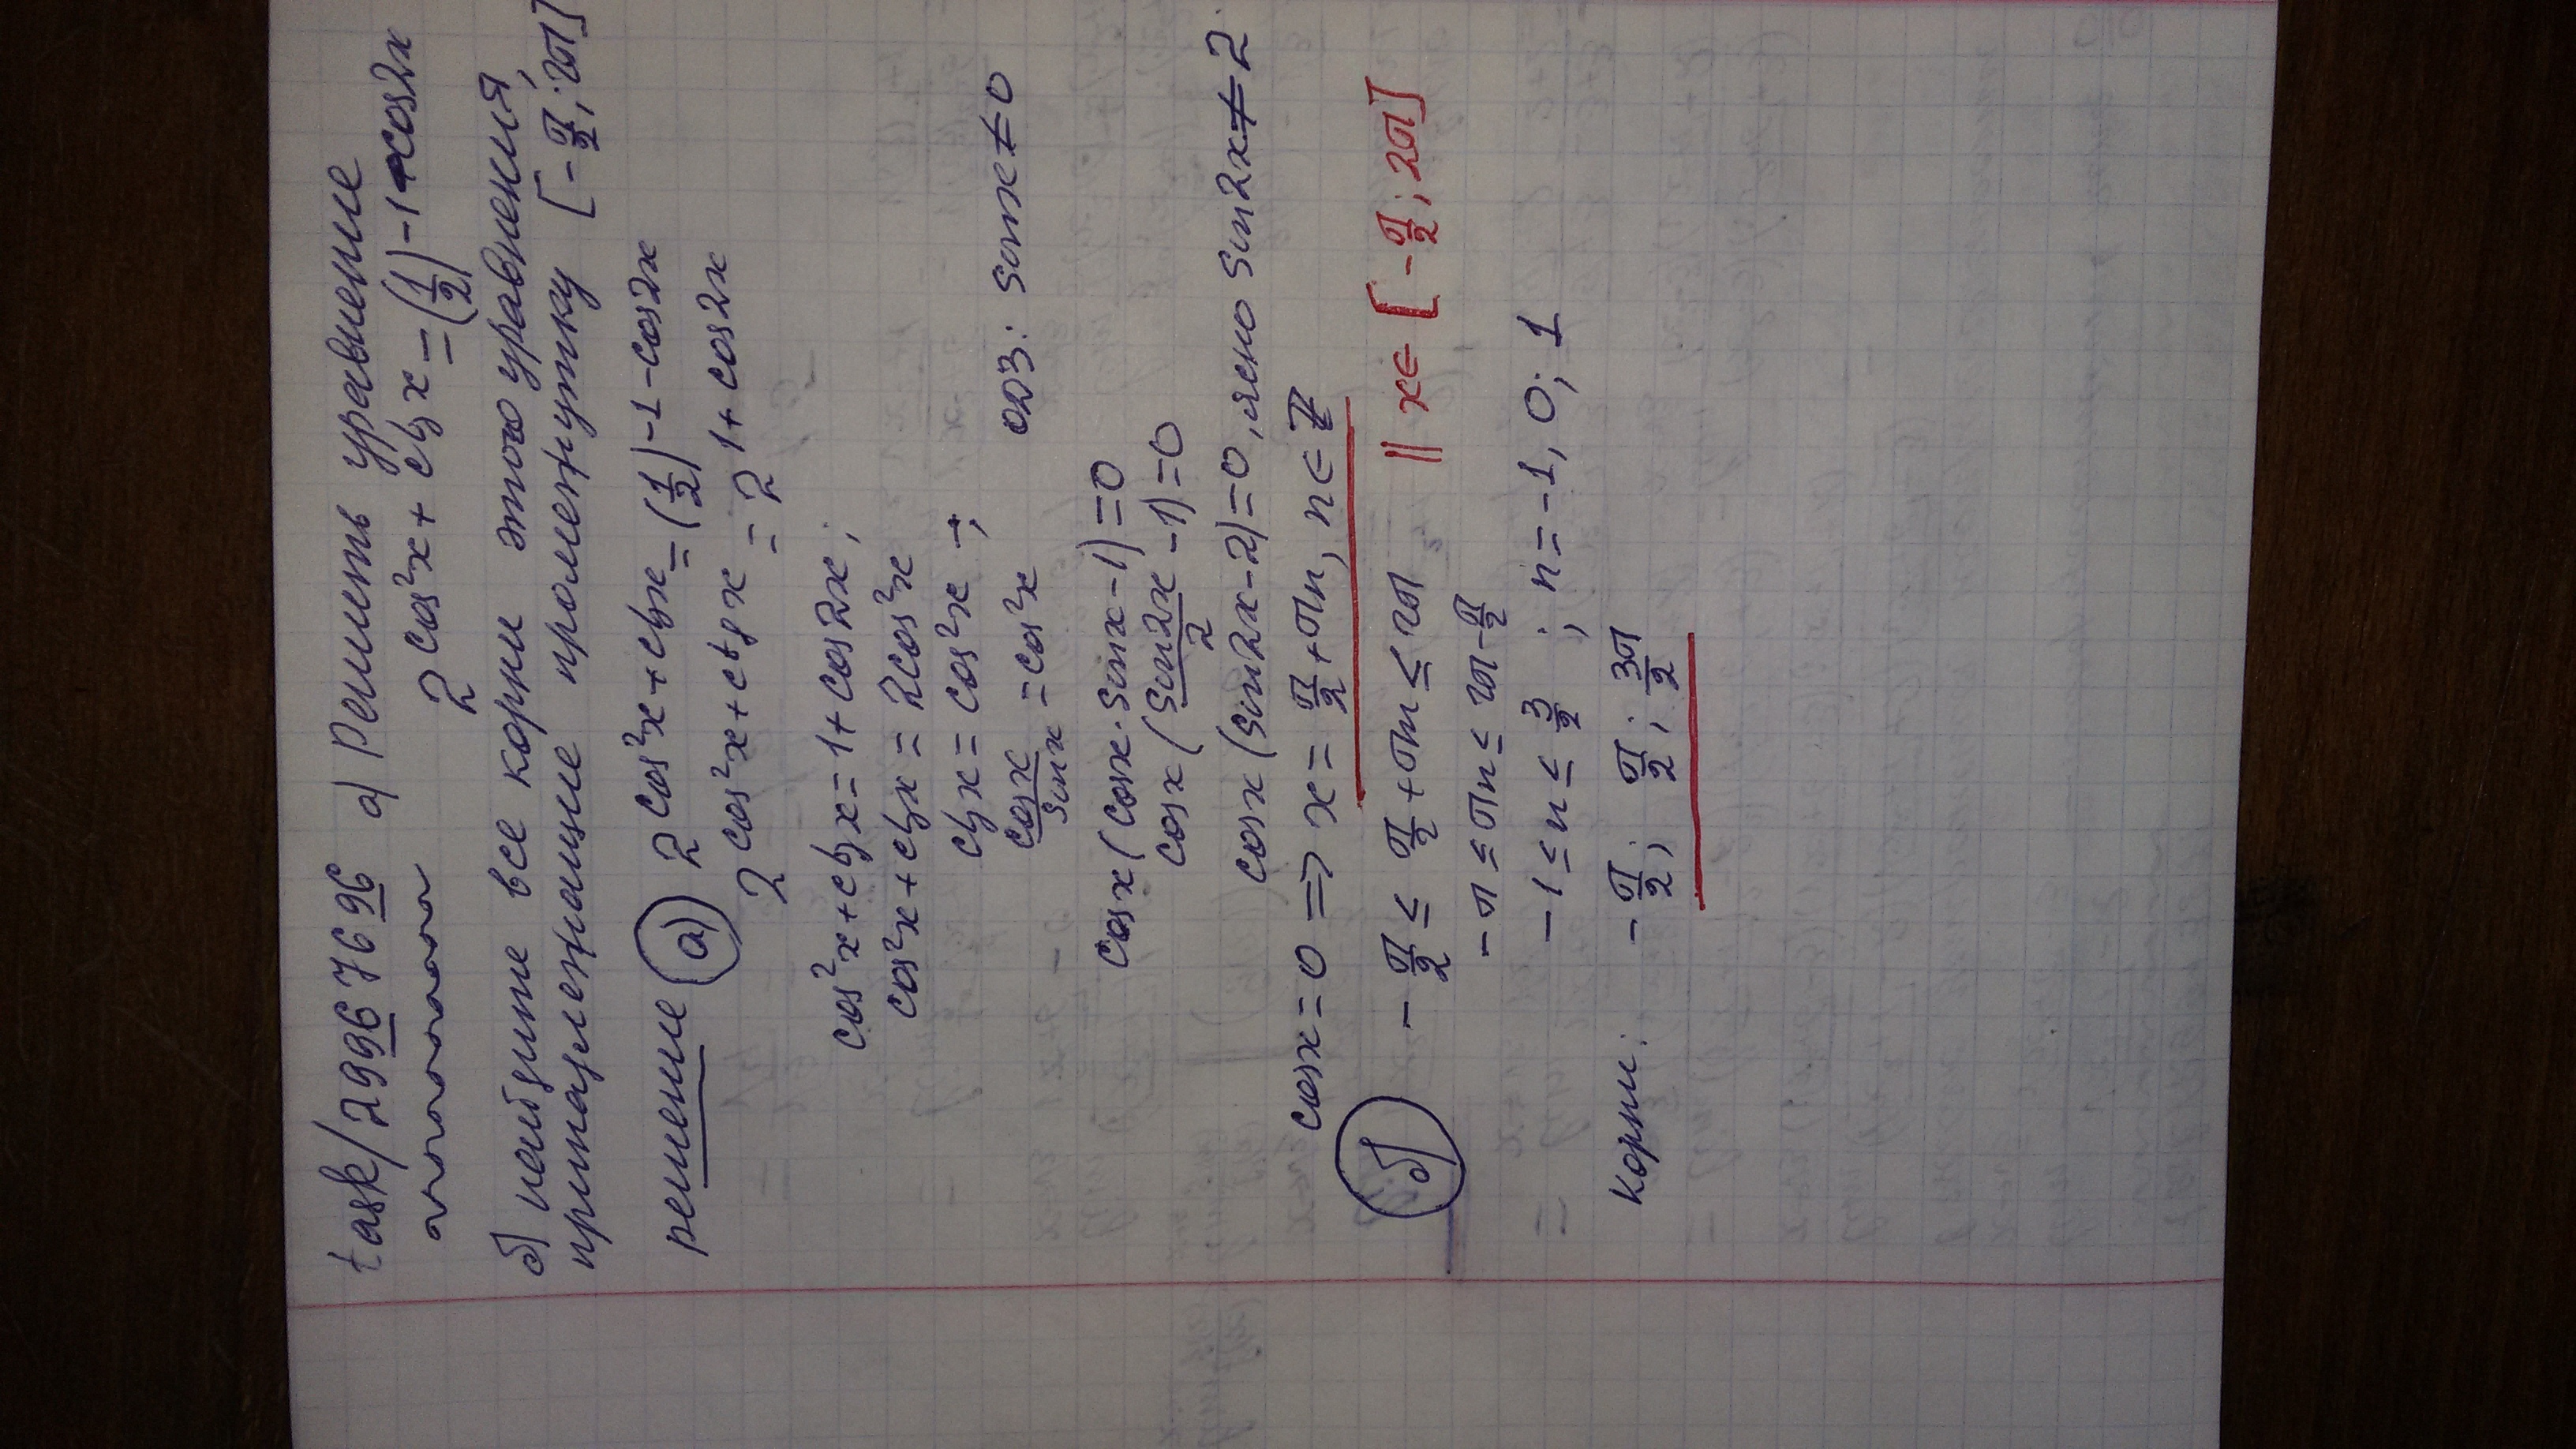 task/29967696 а) Решить уравнение
2^(cos²x + ctgx) = (1/2)^(-1-cos2x)
б) найдите все корни этого уравнения,
принадлежащие промежутку [-π/2; 2π]
решение а) 2^(cos²x + ctgx) = (1/2)^(-1-cos2x)
2^(cos²x + ctgx) = 2^(1+cos2x)
cos²x + ctgx = 1 + cos2x;
cos²x + ctgx = 2cos²x
ctgx = cos²x ;
cosx/sinx = cos²x ОДЗ: sinx ≠ 0
cosx(cosx·sinx-1) = 0
cosx(sin2x/2 -1) = 0
cosx(sin2x-2) = 0, ясно sin2x ≠ 2.
cosx = 0 => x = π/2 + πn, n ∈ Z
б) -π/2 ≤ π/2 + πn ≤ 2π || x ∈ [-π/2; 2π]
-π ≤ πn ≤ 2π - π/2
-1 ≤ n ≤ 3/2 ; n = -1, 0; 1
корни: -π/2; π/2; 3π/2